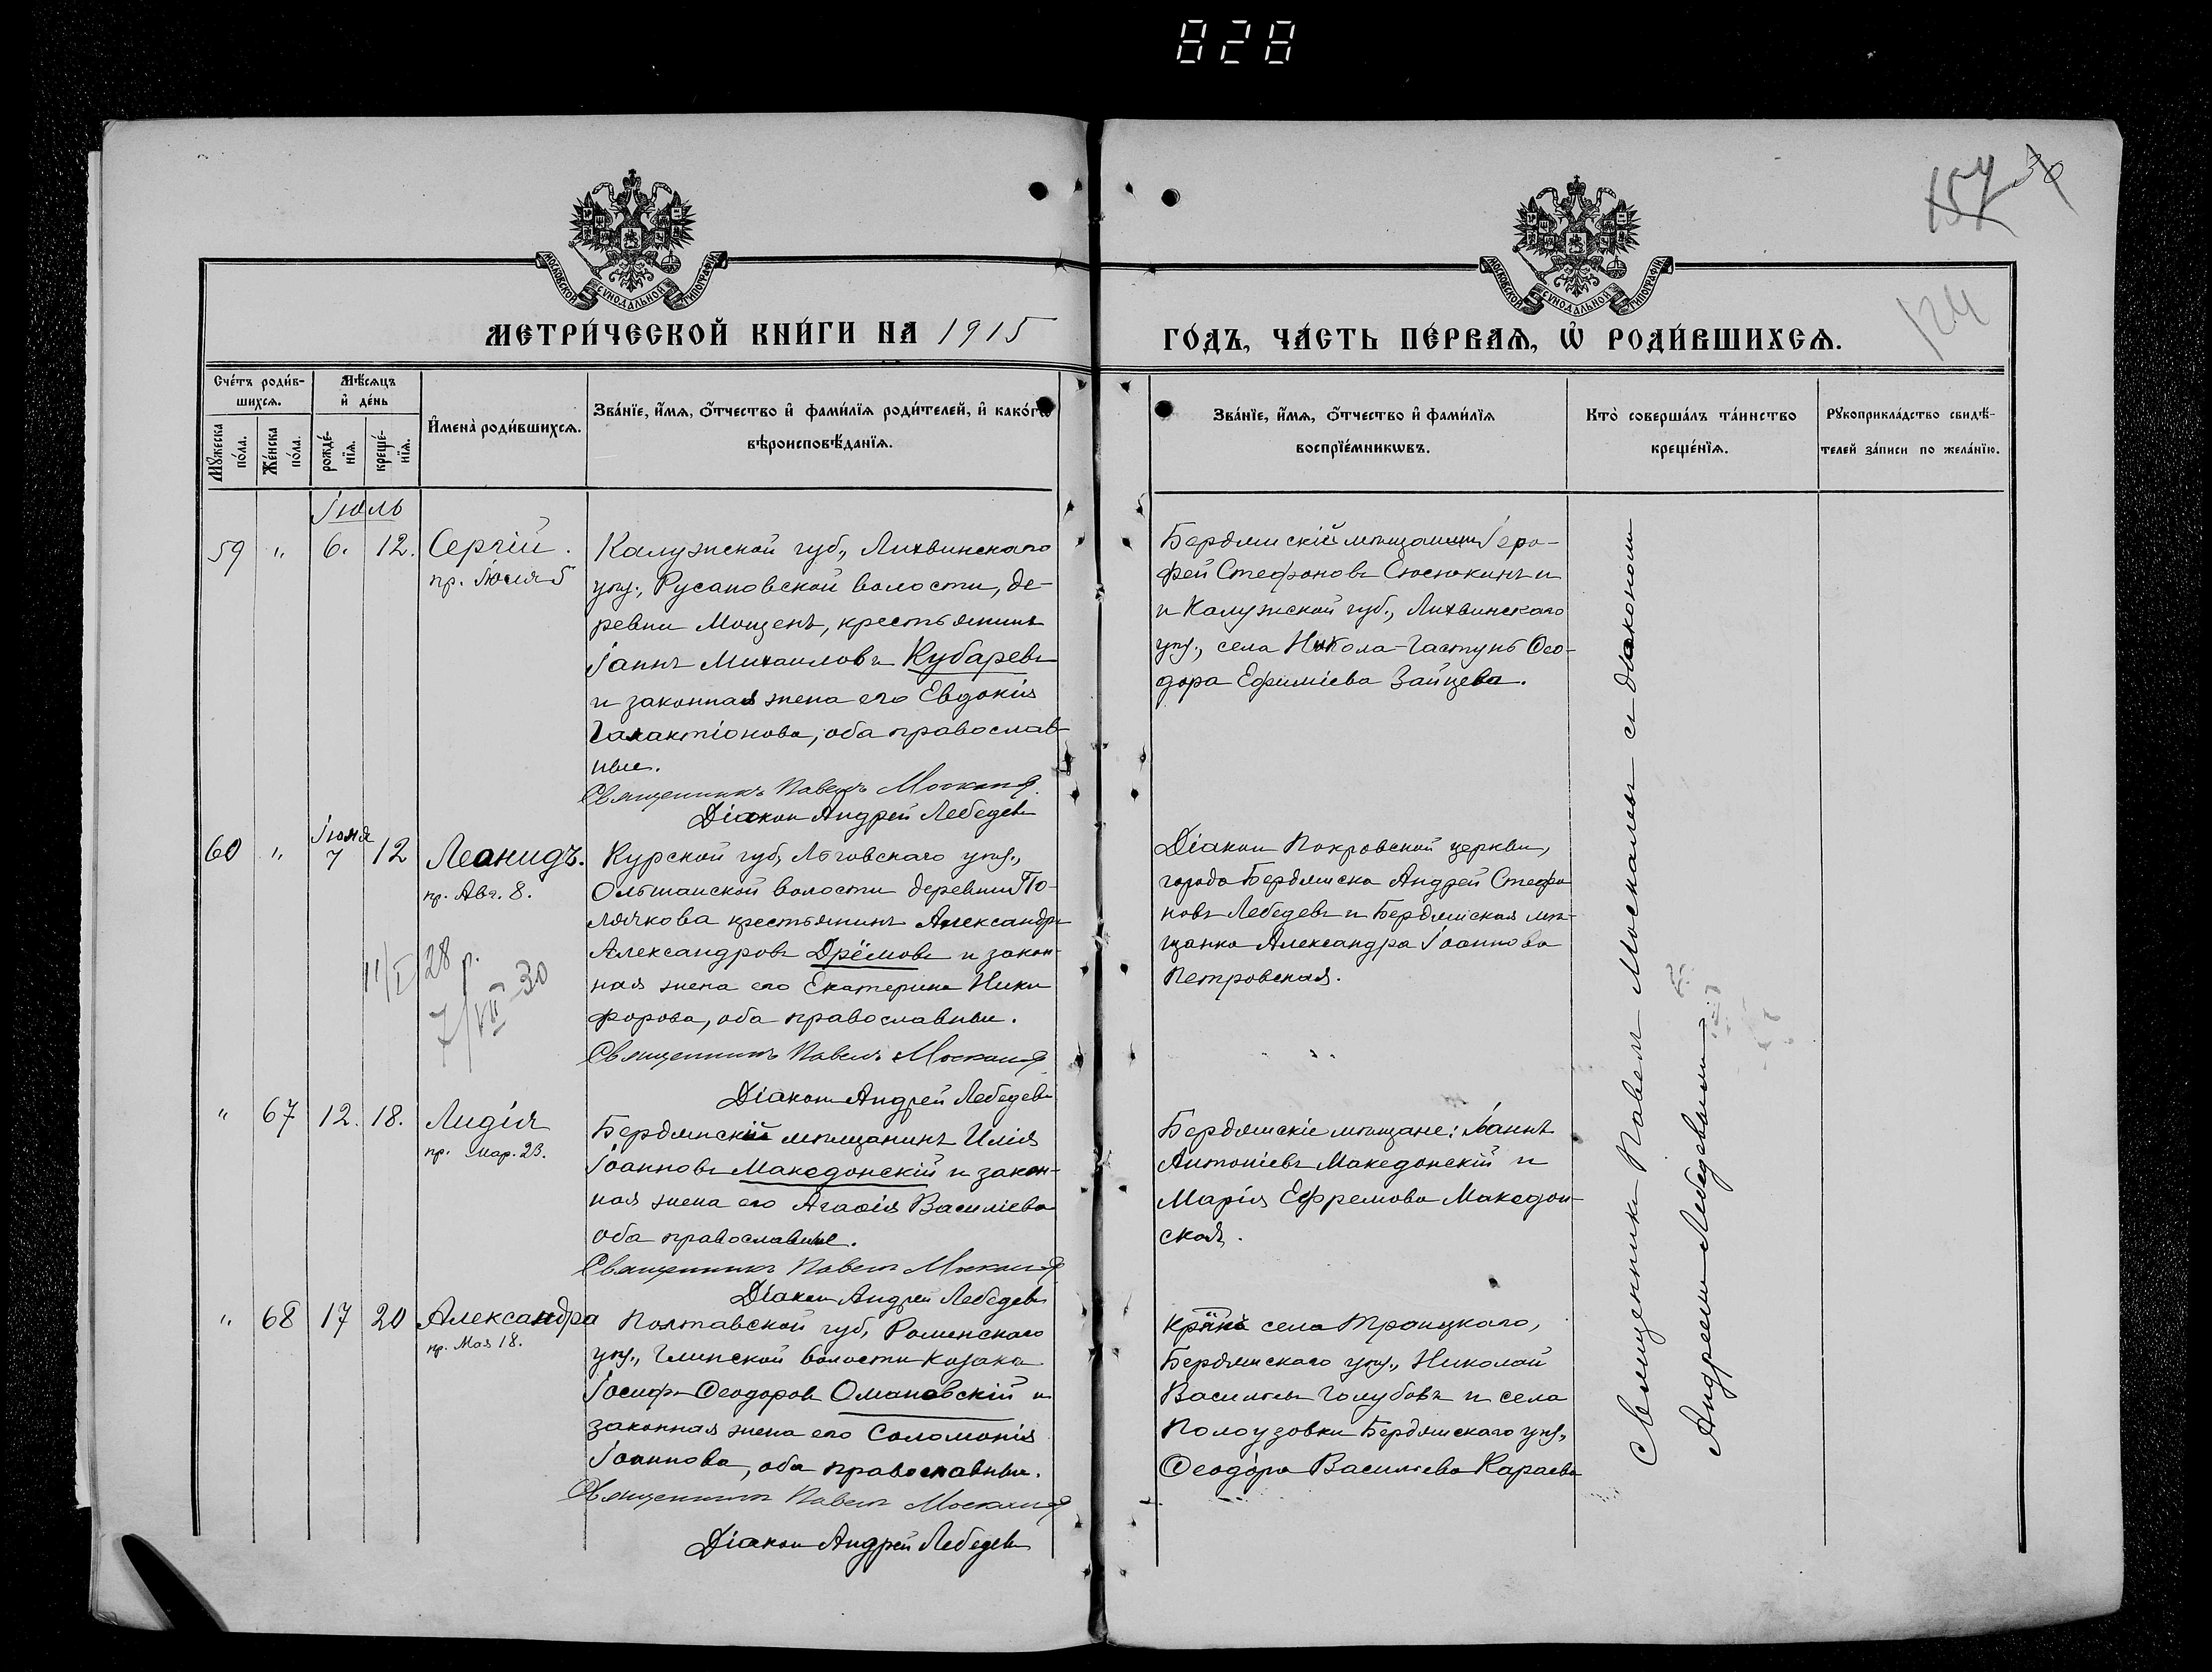 828
157 30
124
МОСКОВСКОЙ СУНОДАЛЬНОЙ ТИПОГРАФІИ
МОСКОВСКОЙ СУНОДАЛЬНОЙ ТИПОГРАФІИ
МЕТРИ́ЧЕСКОЙ КНИ́ГИ НА 1915
ГО́ДЪ, ЧА́СТЬ ПЕ́РВАѦ, Ѿ РОДИ́ВШИХСѦ.
Сче́тъ роди́в-
шихсѧ.
Мꙋжеска
по́ла.
Же́нска
по́ла.
Мѣ́сѧцъ
и҆ де́нь
рожде́-
нїѧ.
креще́-
нїѧ.
И҆мена̀ роди́вшихсѧ.
Зва́нїе, и҆́мѧ, ѻ҆́тчество и҆ фами́лїѧ роди́телей, и҆ како́гѡ
вѣроисповѣ́данїѧ.
Зва́нїе, и҆́мѧ, ѻ҆́тчество и҆ фами́лїѧ
воспрїе́мникѡвъ.
Кто̀ соверша́лъ та́инство
креще́нїѧ.
Рꙋкоприкла́дство свидѣ́-
телей за́писи по жела́нїю.
Іюль
59 " 6. 12. Сергій.
пр. Іюля 5
Калужской губ., Лихвинскаго
уѣз., Русановской волости, де-
ревни Мощенъ, крестьянинъ
Іоаннъ Михаиловъ Кубаревъ
и законная жена его Евдокія
Галактіонова, оба православ-
ные.
Священникъ Павелъ
Діаконъ Андрей Лебедевъ
Бердянскій мѣщанинъ Іеро-
фей Стефановъ и
и Калужской губ., Лихвинскаго
уѣз., села Никола-Гастунь Ѳео-
дора Ефиміева Зайцева.
60 " Іюня 7 12 Леонидъ.
пр. Авг. 8.
11/I 28 г.
7/VII-30
Курской губ., Льговскаго уѣз.,
Ольшанской волости деревни По-
лячкова крестьянинъ Александръ
Александровъ Дрёмовъ и закон-
ная жена его Екатерина Ники
форова, оба православные.
Священникъ Павелъ
Діаконъ Андрей Лебедевъ
Діаконъ Покровской церкви,
города Бердянска Андрей Стефа
новъ Лебедевъ и Бердянская мѣ-
щанка Александра Іоаннова
Петровская.
" 67 12. 18. Лидія
пр. мар. 23.
Бердянскій мѣщанинъ Илія
Іоанновъ Македонскій и закон-
ная жена его Агаѳія Василіева
оба православные.
Священникъ Павелъ
Діаконъ Андрей Лебедевъ
Бердянскіе мѣщане: Іоаннъ
Антоніевъ Македонскій и
Марія Ефремова Македон-
ская.
" 68 17 20 Александра
пр. Мая 18.
Полтавской губ., Роменскаго
уѣз., Глинской волости козака
Іосифъ Ѳеодоровъ Омановскій и
законная жена его Соломонія
Іоаннова, оба православные.
Священникъ Павелъ
Діаконъ Андрей Лебедевъ
села Троицкаго,
Бердянскаго уѣз., Николай
Васильевъ Голубовъ и села
Полоузовки Бердянскаго уѣз.,
Ѳеодора Васильева Караева
Священникъ Павелъ съ діакономъ
Андреемъ Лебедевымъ